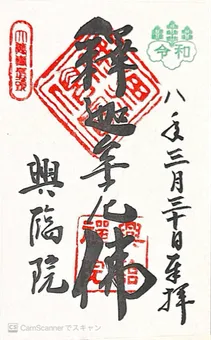 令和
八年三月三十日奉拝
釋迦牟尼佛
興臨
禪院
興臨院
CamScannerでスキャン